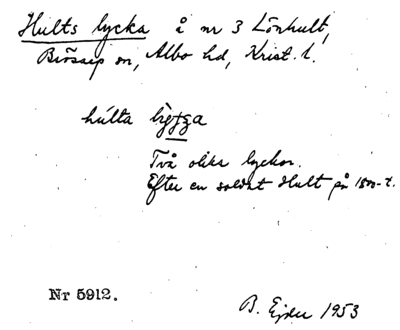 Hults lycka å nr 3 Lönhult,
Brösarp sn, Albo hd, Krist. l.
húlta lỳgga
Två olika lyckor.
Efter en soldat Hult på 1800-t.
Nr 5912.
B. Ejder 1953